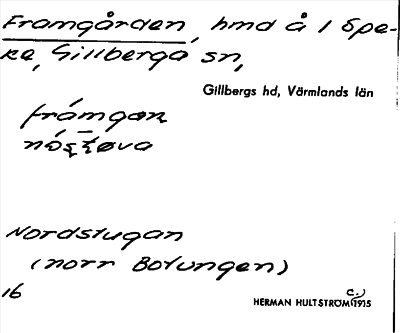 Framgården, hmd å 1 Spe-
ke, Gillberga sn,
Gillbergs hd, Värmlands län
Nordstugan
(norr Botungen)
16
HERMAN HULTSTRÖM c.) 1915